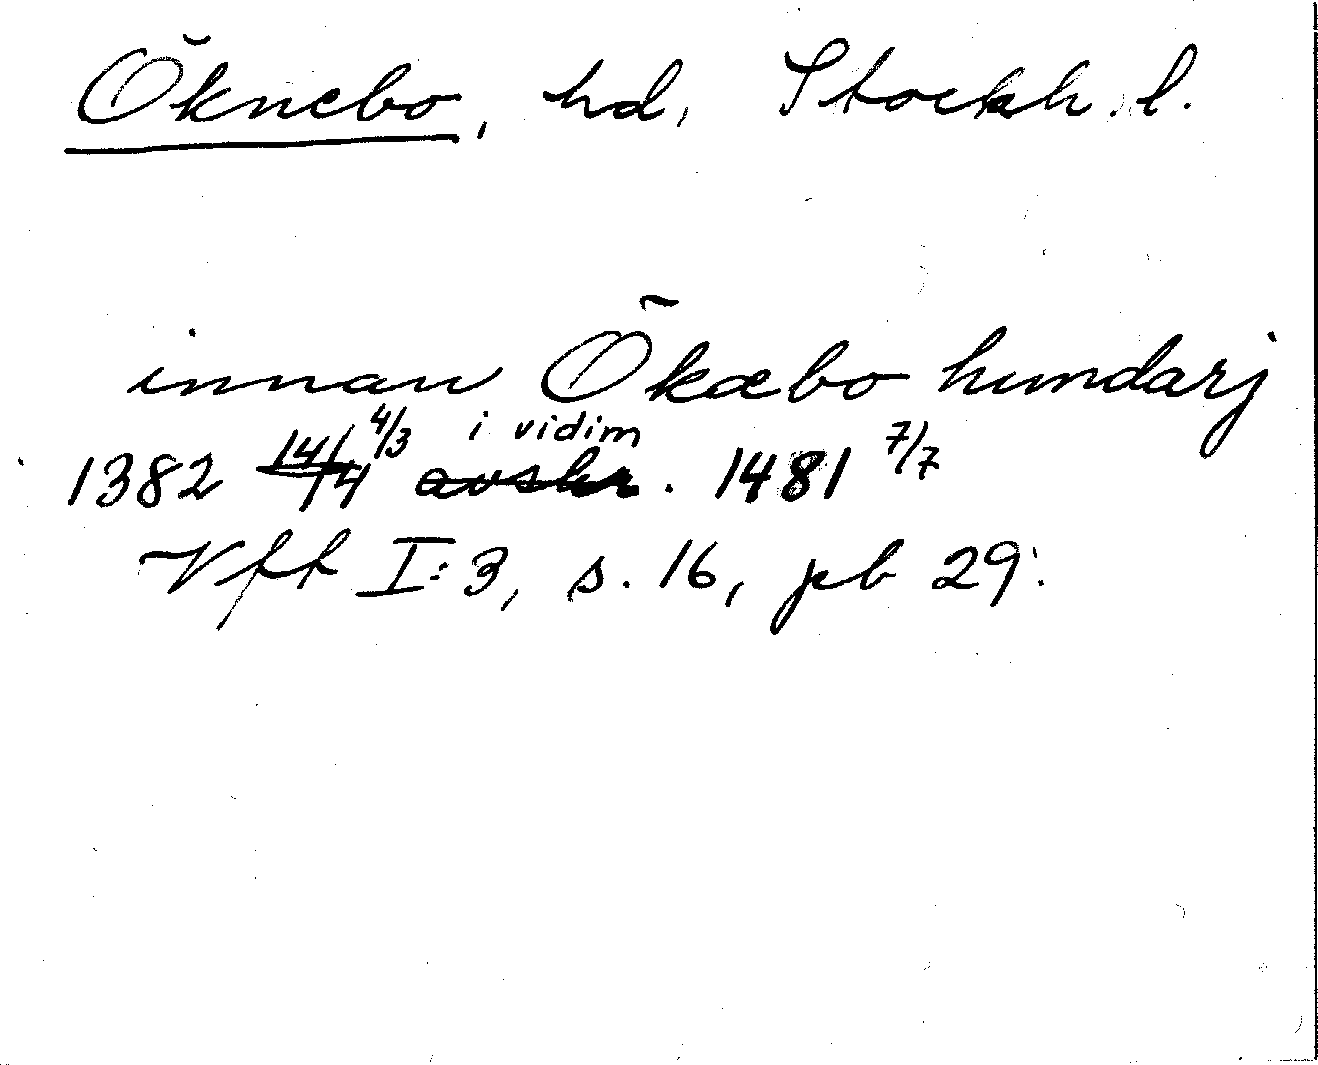 Öknebo, hd, Stockh. l.
innan Økæbo hundarj
1382 4/3 i vidim. 1481 7/7
Vff I:3, s. 16, pb 29.